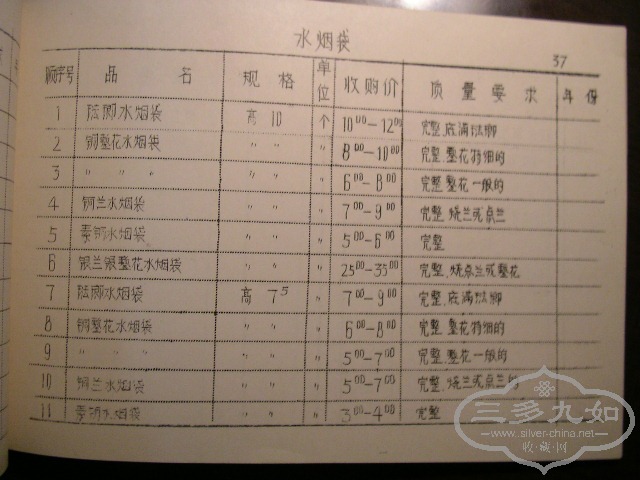 水烟袋
37
顺序号 品名 规格 单位 收购价 质量要求 年份
1 珐瑯水烟袋 高10 个 10.00-12.00 完整.底满珐瑯
2 铜錾花水烟袋 〃 〃 〃 8.00-10.00 完整.錾花特细的
3 〃 〃 〃 〃 〃 6.00-8.00 完整.錾花一般的
4 铜兰水烟袋 〃 〃 〃 7.00-9.00 完整.烧兰或点兰
5 素铜水烟袋 〃 〃 〃 5.00-6.00 完整
6 银兰银錾花水烟袋 〃 〃 〃 25.00-35.00 完整.烧点兰或錾花
7 珐瑯水烟袋 高7.5 〃 7.00-9.00 完整.底满珐瑯
8 铜錾花水烟袋 〃 〃 〃 6.00-8.00 完整.錾花特细的
9 〃 〃 〃 〃 〃 5.00-7.00 完整.錾花一般的
10 铜兰水烟袋 〃 〃 〃 5.00-7.00 完整.烧兰或点兰
11 素铜水烟袋 〃 〃 〃 3.00-4.00 完整
三多九如
www.silver-china.net
收·藏·网